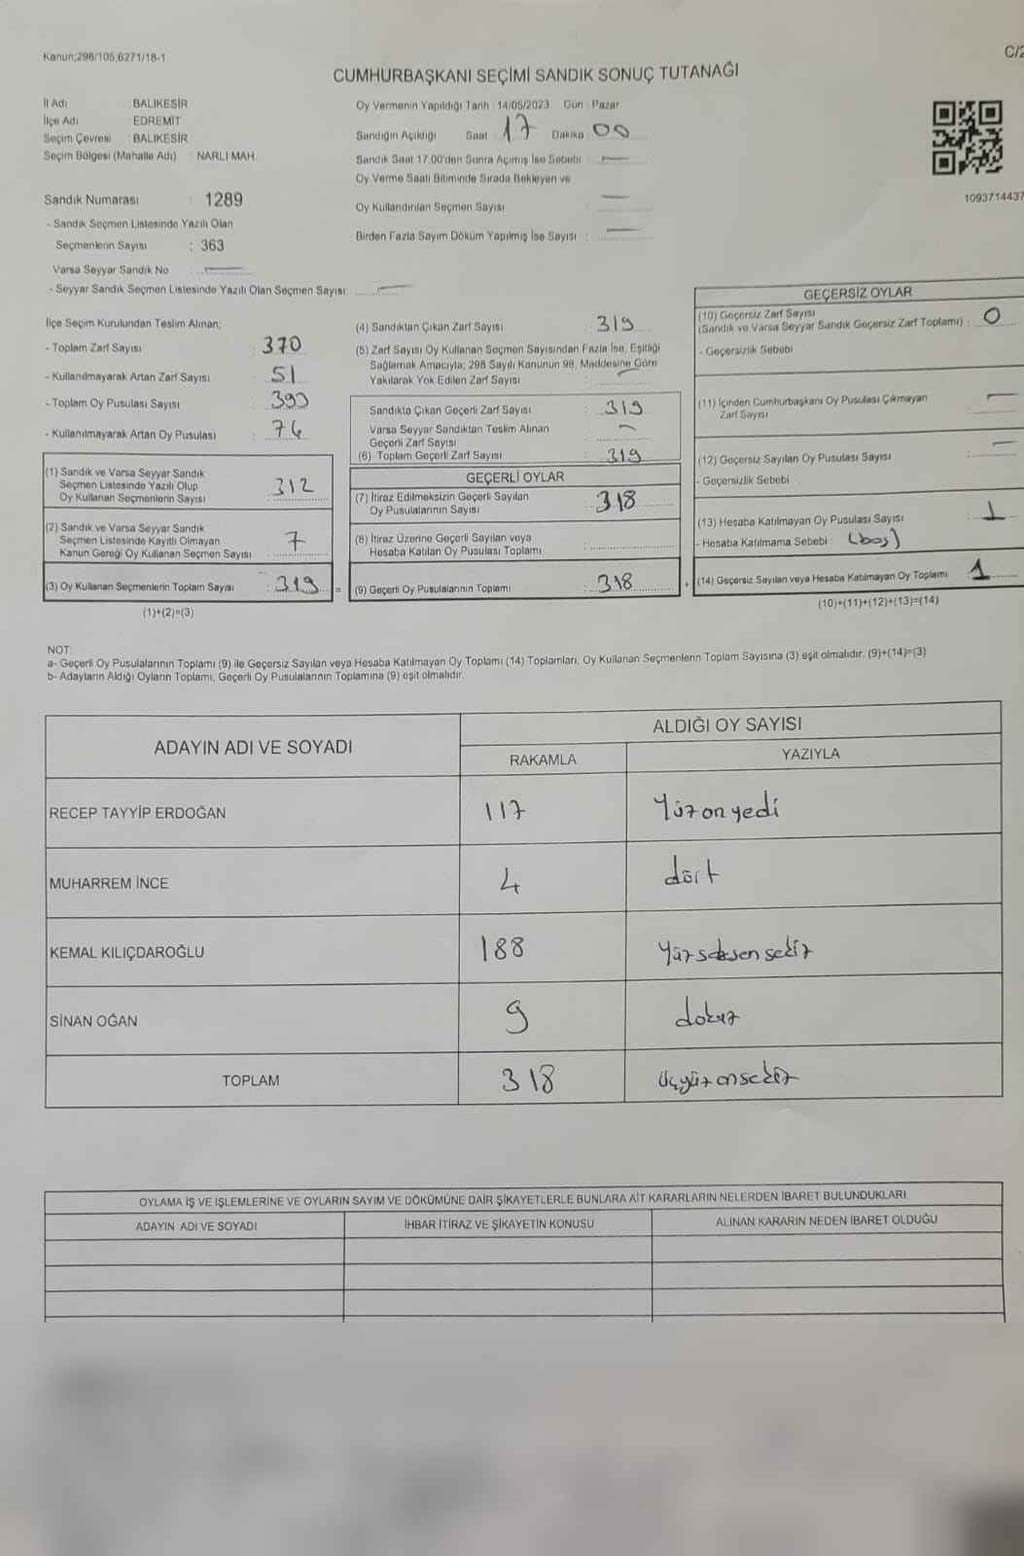 Kanun;298/105;6271/18-1
C/2
CUMHURBAŞKANI SEÇİMİ SANDIK SONUÇ TUTANAĞI
İl Adı BALIKESİR
İlçe Adı EDREMİT
Seçim Çevresi BALIKESİR
Seçim Bölgesi (Mahalle Adı) NARLI MAH.
Oy Vermenin Yapıldığı Tarih : 14/05/2023 Gün : Pazar
Sandığın Açıldığı Saat : 17 Dakika : 00
Sandık Saat 17.00'den Sonra Açılmış İse Sebebi : —
Oy Verme Saati Bitiminde Sırada Bekleyen ve
Oy Kullandırılan Seçmen Sayısı —
Birden Fazla Sayım Döküm Yapılmış İse Sayısı : —
1093714437
Sandık Numarası : 1289
- Sandık Seçmen Listesinde Yazılı Olan
Seçmenlerin Sayısı : 363
Varsa Seyyar Sandık No : —
- Seyyar Sandık Seçmen Listesinde Yazılı Olan Seçmen Sayısı: —
İlçe Seçim Kurulundan Teslim Alınan;
- Toplam Zarf Sayısı : 370
- Kullanılmayarak Artan Zarf Sayısı : 51
- Toplam Oy Pusulası Sayısı : 393
- Kullanılmayarak Artan Oy Pusulası : 74
(1) Sandık ve Varsa Seyyar Sandık
Seçmen Listesinde Yazılı Olup
Oy Kullanan Seçmenlerin Sayısı : 312
(2) Sandık ve Varsa Seyyar Sandık
Seçmen Listesinde Kayıtlı Olmayan
Kanun Gereği Oy Kullanan Seçmen Sayısı : 7
(3) Oy Kullanan Seçmenlerin Toplam Sayısı : 319 =
(1)+(2)=(3)
(4) Sandıktan Çıkan Zarf Sayısı : 319
(5) Zarf Sayısı Oy Kullanan Seçmen Sayısından Fazla İse, Eşitliği
Sağlamak Amacıyla; 298 Sayılı Kanunun 98. Maddesine Göre
Yakılarak Yok Edilen Zarf Sayısı : —
Sandıkta Çıkan Geçerli Zarf Sayısı : 319
Varsa Seyyar Sandıktan Teslim Alınan
Geçerli Zarf Sayısı : —
(6) Toplam Geçerli Zarf Sayısı : 319
GEÇERLİ OYLAR
(7) İtiraz Edilmeksizin Geçerli Sayılan
Oy Pusulalarının Sayısı : 318
(8) İtiraz Üzerine Geçerli Sayılan veya
Hesaba Katılan Oy Pusulası Toplamı :
(9) Geçerli Oy Pusulalarının Toplamı : 318
GEÇERSİZ OYLAR
(10) Geçersiz Zarf Sayısı
(Sandık ve Varsa Seyyar Sandık Geçersiz Zarf Toplamı) : 0
- Geçersizlik Sebebi
(11) İçinden Cumhurbaşkanı Oy Pusulası Çıkmayan
Zarf Sayısı : —
(12) Geçersiz Sayılan Oy Pusulası Sayısı : —
- Geçersizlik Sebebi
(13) Hesaba Katılmayan Oy Pusulası Sayısı : 1
- Hesaba Katılmama Sebebi : (boş)
+ (14) Geçersiz Sayılan veya Hesaba Katılmayan Oy Toplamı : 1
(10)+(11)+(12)+(13)=(14)
NOT:
a- Geçerli Oy Pusulalarının Toplamı (9) ile Geçersiz Sayılan veya Hesaba Katılmayan Oy Toplamı (14) Toplamları, Oy Kullanan Seçmenlerin Toplam Sayısına (3) eşit olmalıdır. (9)+(14)=(3)
b- Adayların Aldığı Oyların Toplamı, Geçerli Oy Pusulalarının Toplamına (9) eşit olmalıdır.
ADAYIN ADI VE SOYADI ALDIĞI OY SAYISI
RAKAMLA YAZIYLA
RECEP TAYYİP ERDOĞAN 117 Yüzonyedi
MUHARREM İNCE 4 dört
KEMAL KILIÇDAROĞLU 188 Yüzseksensekiz
SİNAN OĞAN 9 dokuz
TOPLAM 318 Üçyüzonsekiz
OYLAMA İŞ VE İŞLEMLERİNE VE OYLARIN SAYIM VE DÖKÜMÜNE DAİR ŞİKAYETLERLE BUNLARA AİT KARARLARIN NELERDEN İBARET BULUNDUKLARI
ADAYIN ADI VE SOYADI İHBAR İTİRAZ VE ŞİKAYETİN KONUSU ALINAN KARARIN NEDEN İBARET OLDUĞU